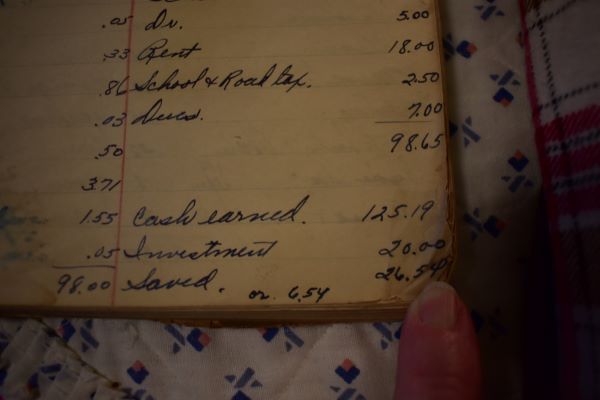 .05 Dr. 5.00
.33 Rent 18.00
.86 School & Road tax. 2.50
.03 Dues. 7.00
.50 98.65
3.71
1.55 Cash earned. 125.19
.05 Investment 20.00
98.00 Saved. or 6.54 26.54